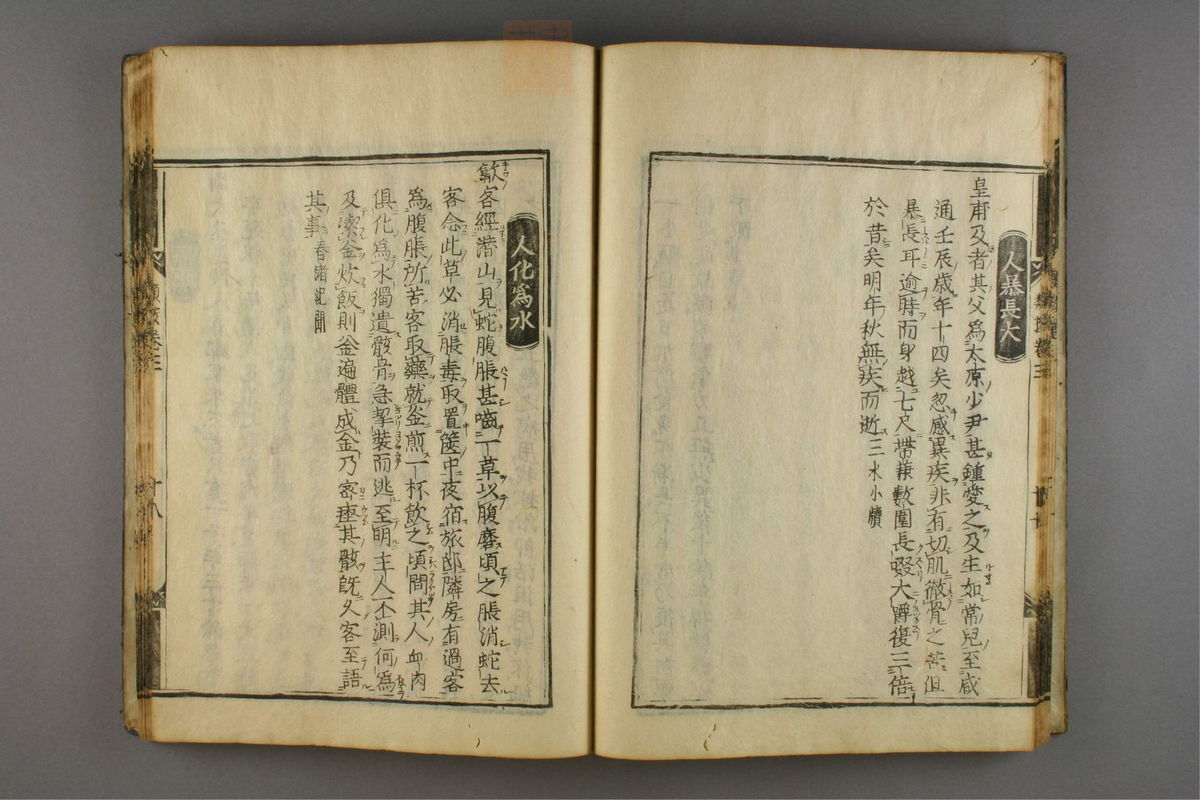 人暴長大
皇甫及者其父爲太原少尹甚鍾愛之及生如常兒至咸
通壬辰歳年十四矣忽感異疾非有切肌徹骨之苦但
暴長耳逾時而身越七尺帶兼數圍長啜大嚼復三倍
於昔矣明年秋無疾而逝三水小牘
人化爲水
歙客經潜山見蛇腹脹甚嚙一草以腹磨頃之脹消蛇去
客念此草必消脹毒取置篋中夜宿旅邸隣房有過客
爲腹脹所苦客取藥就釜煎一杯飲之頃間其人血肉
俱化爲水獨遺骸骨急挈裝而逃至明主人不測何爲
及潔釜炊飯則釜遍體成金乃密瘞其骸既久客至語
其事春渚紀聞
十八